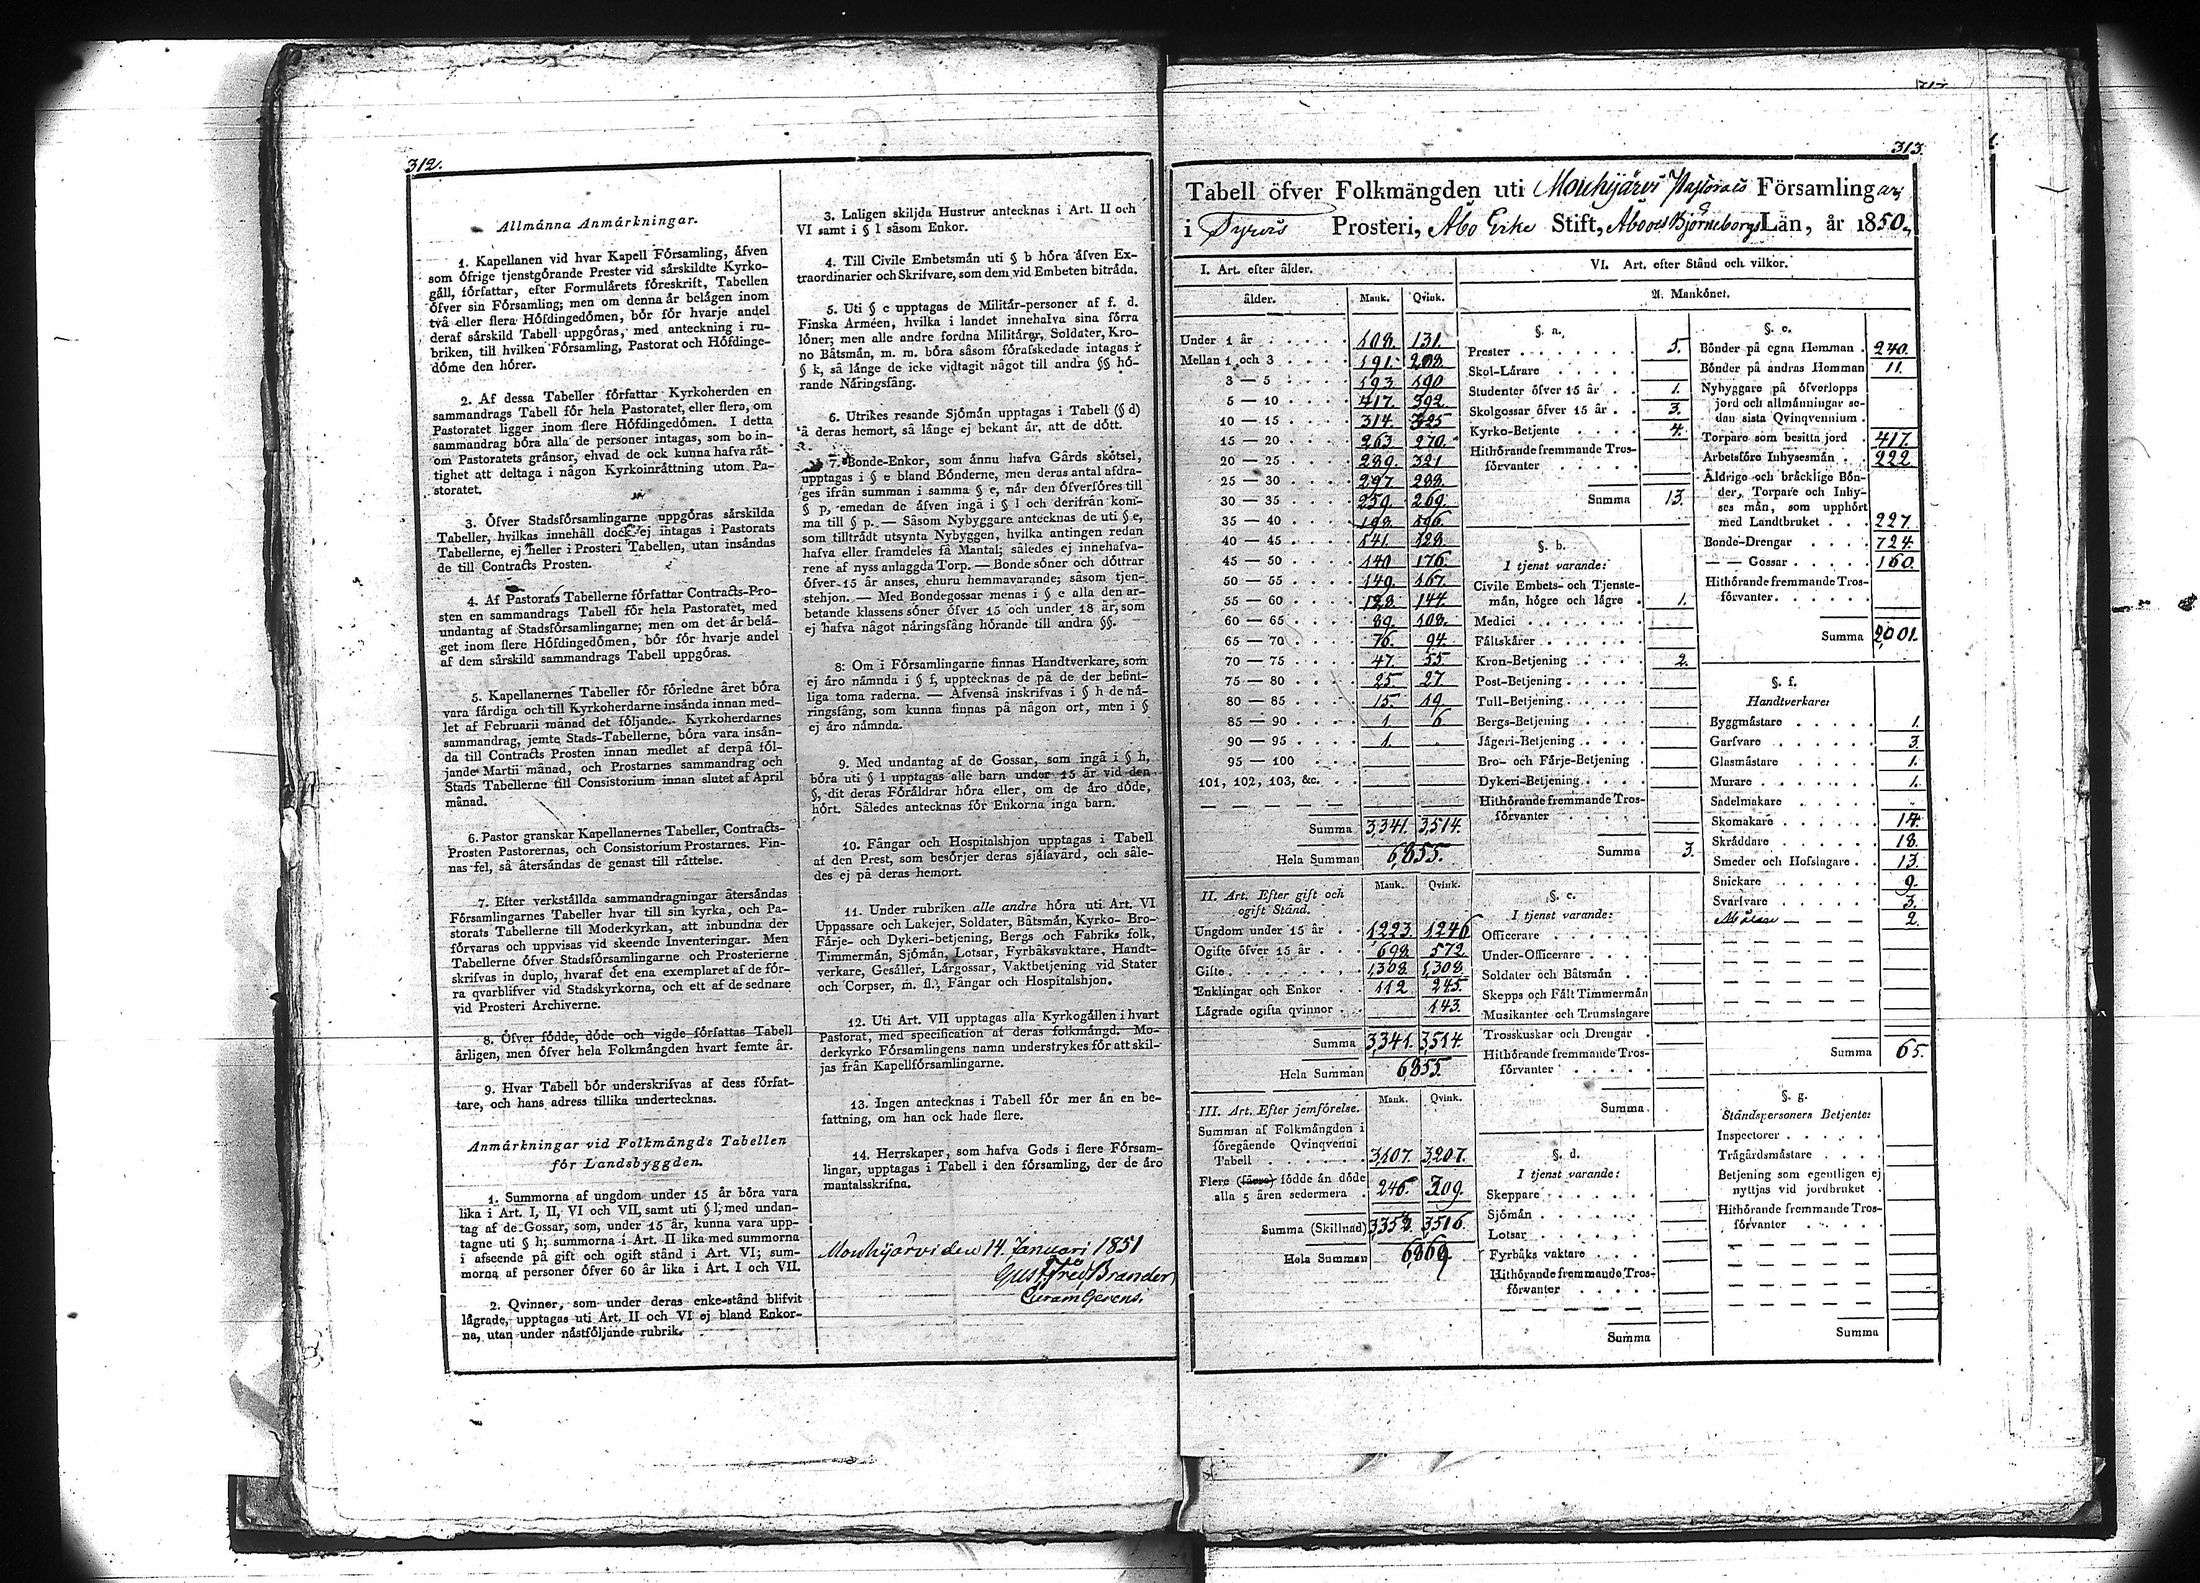 312.
Allmänna Anmärkningar.
1. Kapellanen vid hvar Kapell Församling, äfven
som öfrige tjenstgörande Prester vid särskildte Kyrko-
gäll, författar, efter Formulärets föreskrift, Tabellen
öfver sin Församling; men om denna är belägen inom
två eller flera Höfdingedömen, bör för hvarje andel
deraf särskild Tabell uppgöras, med anteckning i ru-
briken, till hvilken Församling, Pastorat och Höfdinge-
döme den hörer.
2. Af dessa Tabeller författar Kyrkoherden en
sammandrags Tabell för hela Pastoratet, eller flera, om
Pastoratet ligger inom flere Höfdingedömen. I detta
sammandrag böra alla de personer intagas, som bo in-
om Pastoratets gränsor, ehvad de ock kunna hafva rät-
tighet att deltaga i någon Kyrkoinrättning utom Pa-
storatet.
3. Öfver Stadsförsamlingarne uppgöras särskilda
Tabeller, hvilkas innehåll dock ej intagas i Pastorats
Tabellerne, ej heller i Prosteri Tabellen, utan insändas
de till Contracts Prosten.
4. Af Pastorats Tabellerne författar Contracts-Pro-
sten en sammandrags Tabell för hela Pastoratet, med
undantag af Stadsförsamlingarne; men om det är belä-
get inom flere Höfdingedömen, bör för hvarje andel
af dem särskild sammandrags Tabell uppgöras.
5. Kapellanernes Tabeller för förledne året böra
vara färdiga och till Kyrkoherdarne insända innan med-
let af Februarii månad det följande. Kyrkoherdarnes
sammandrag, jemte Stads-Tabellerne, böra vara insän-
da till Contracts Prosten innan medlet af derpå föl-
jande Martii månad, och Prostarnes sammandrag och
Stads Tabellerne till Consistorium innan slutet af April
månad.
6. Pastor granskar Kapellanernes Tabeller, Contracts-
Prosten Pastorernas, och Consistorium Prostarnes. Fin-
nas fel, så återsändas de genast till rättelse.
7. Efter verkställda sammandragningar återsändas
Församlingarnes Tabeller hvar till sin kyrka, och Pa-
storats Tabellerne till Moderkyrkan, att inbundna der
förvaras och uppvisas vid skeende Inventeringar. Men
Tabellerne öfver Stadsförsamlingarne och Prosterierne
skrifvas in duplo, hvaraf det ena exemplaret af de för-
ra qvarblifver vid Stadskyrkorna, och ett af de sednare
vid Prosteri Archiverne.
8. Öfver födde, döde och vigde författas Tabell
årligen, men öfver hela Folkmängden hvart femte år.
9. Hvar Tabell bör underskrifvas af dess förfat-
tare, och hans adress tillika undertecknas.
Anmärkningar vid Folkmängds Tabellen
för Landsbyggden.
1. Summorna af ungdom under 15 år böra vara
lika i Art. I, II, VI och VII, samt uti § l; med undan-
tag af de Gossar, som, under 15 år, kunna vara upp-
tagne uti § h; summorna i Art. II lika med summorna
i afseende på gift och ogift stånd i Art. VI; sum-
morna af personer öfver 60 år lika i Art. I och VII.
2. Qvinnor, som under deras enke-stånd blifvit
lägrade, upptagas uti Art. II och VI ej bland Enkor-
na, utan under nästföljande rubrik.
3. Laligen skiljda Hustrur antecknas i Art. II och
VI samt i § l såsom Enkor.
4. Till Civile Embetsmän uti § b höra äfven Ex-
traordinarier och Skrifvare, som dem vid Embeten biträda.
5. Uti § c upptagas de Militär-personer af f. d.
Finska Arméen, hvilka i landet innehafva sina förra
löner; men alle andre fordna Militärer, Soldater, Kro-
no Båtsmän, m. m. böra såsom förafskedade intagas i
§ k, så länge de icke vidtagit något till andra §§ hö-
rande Näringsfång.
6. Utrikes resande Sjömän upptagas i Tabell (§ d)
å deras hemort, så länge ej bekant är, att de dött.
7. Bonde-Enkor, som ännu hafva Gårds skötsel,
upptagas i § e bland Bönderne, men deras antal afdra-
ges ifrån summan i samma § e, när den öfverföres till
§ p, emedan de äfven ingå i § l och derifrån kom-
ma till § p. — Såsom Nybyggare antecknas de uti § e,
som tillträdt utsynta Nybyggen, hvilka antingen redan
hafva eller framdeles få Mantal; således ej innehafva-
rene af nyss anlaggda Torp. — Bonde söner och döttrar
öfver 15 år anses, ehuru hemmavarande; såsom tjen-
stehjon. — Med Bondegossar menas i § e alla den ar-
betande klassens söner öfver 15 och under 18 år, som
ej hafva något näringsfång hörande till andra §§.
8: Om i Församlingarne finnas Handtverkare, som
ej äro nämnda i § f, upptecknas de på de der befint-
liga toma raderna. — Äfvenså inskrifvas i § h de nä-
ringsfång, som kunna finnas på någon ort, men i §
ej äro nämnda.
9. Med undantag af de Gossar, som ingå i § h,
böra uti § l upptagas alle barn under 15 år vid den
§, dit deras Föräldrar höra eller, om de äro döde,
hört. Således antecknas för Enkorna inga barn.
10. Fångar och Hospitalshjon upptagas i Tabell
af den Prest, som besörjer deras själavård, och såle-
des ej på deras hemort.
11. Under rubriken alle andre höra uti Art. VI
Uppassare och Lakejer, Soldater, Båtsmän, Kyrko- Bro-
Färje- och Dykeri-betjening, Bergs och Fabriks folk,
Timmermän, Sjömän, Lotsar, Fyrbåksvaktare, Handt-
verkare, Gesäller, Lärgossar, Vaktbetjening vid Stater
och Corpser, m. fl., Fångar och Hospitalshjon.
12. Uti Art. VII upptagas alla Kyrkogällen i hvart
Pastorat, med specification af deras folkmängd. Mo-
derkyrko Församlingens namn understrykes för att skil-
jas från Kapellförsamlingarne.
13. Ingen antecknas i Tabell för mer än en be-
fattning, om han ock hade flere.
14. Herrskaper, som hafva Gods i flere Försam-
lingar, upptagas i Tabell i den församling, der de äro
mantalsskrifna.
Mouhijärvi den 14. Januari 1851
Gust. Fred. Brander,
Curam Gerens.
313.
Tabell öfver Folkmängden uti Mouhijärvi Pastorats Församlingar,
i Tyrvis Prosteri, Åbo Erke Stift, Åbo och Björneborgs Län, år 1850.,
I. Art. efter ålder.
ålder. Mank. Qvink.
Under 1 år 108. 131.
Mellan 1 och 3 191. 208.
3 — 5 193. 190
5 — 10 417. 392.
10 — 15 314. 325
15 — 20 263. 270.
20 — 25 289. 321
25 — 30 297. 288.
30 — 35 259. 269.
35 — 40 198. 196.
40 — 45 141. 128.
45 — 50 140 176.
50 — 55 149. 167.
55 — 60 128. 144.
60 — 65 89. 108.
65 — 70 76. 94.
70 — 75 47. 55.
75 — 80 25 27
80 — 85 15. 19.
85 — 90 1. 6
90 — 95 1.
95 — 100
101, 102, 103, &c.
Summa 3,341. 3,514.
Hela Summan 6,855.
II. Art. Efter gift och
ogift Stånd. Mank. Qvink.
Ungdom under 15 år 1223. 1246
Ogifte öfver 15 år 698. 572.
Gifte 1,308. 1,308.
Enklingar och Enkor 112 245.
Lägrade ogifta qvinnor 143.
Summa 3,341. 3,514.
Hela Summan 6,855.
III. Art. Efter jemförelse. Mank. Qvink.
Summan af Folkmängden i
föregående Qvinqvenni
Tabell 3,107. 3,207.
Flere (färre) födde än döde
alla 5 åren sedermera 245. 309.
Summa (Skillnad) 3,352. 3,516.
Hela Summan 6,868
VI. Art. efter Stånd och vilkor.
A. Mankönet.
§. a.
Prester 5.
Skol-Lärare
Studenter öfver 15 år 1.
Skolgossar öfver 15 år 3.
Kyrko-Betjente 4.
Hithörande fremmande Tros-
förvanter
Summa 13.
§. b.
I tjenst varande:
Civile Embets- och Tjenste-
män, högre och lägre 1.
Medici
Fältskärer
Kron-Betjening 2.
Post-Betjening
Tull-Betjening
Bergs-Betjening
Jägeri-Betjening
Bro- och Färje-Betjening
Dykeri-Betjening
Hithörande fremmande Tros-
förvanter
Summa 3.
§. c.
I tjenst varande:
Officerare
Under-Officerare
Soldater och Båtsmän
Skepps och Fält Timmermän
Musikanter och Trumslagare
Trosskuskar och Drengar
Hithörande fremmande Tros-
förvanter
Summa.
§. d.
I tjenst varande:
Skeppare
Sjömän
Lotsar
Fyrbåks vaktare
Hithörande fremmande Tros-
förvanter
Summa
§. e.
Bönder på egna Hemman 240.
Bönder på andras Hemman 11.
Nybyggare på öfverlopps
jord och allmänningar se-
dan sista Qvinqvennium
Torpare som besitta jord 417.
Arbetsföre Inhysesmän 222.
Åldrige och bräcklige Bön-
der, Torpare och Inhy-
ses män, som upphört
med Landtbruket 227
Bonde-Drengar 724.
— — Gossar 160.
Hithörande fremmande Tros-
förvanter
Summa 2,001.
§. f.
Handtverkare:
Byggmästare 1.
Garfvare 3.
Glasmästare 1.
Murare 1.
Sadelmakare
Skomakare 14.
Skräddare 18.
Smeder och Hofslagare 13.
Snickare 9.
Svarfvare 3.
Målare 2.
Summa 65.
§. g.
Ståndspersoners Betjente:
Inspectorer
Trägårdsmästare
Betjening som egentligen ej
nyttjas vid jordbruket
Hithörande fremmande Tros-
förvanter
Summa